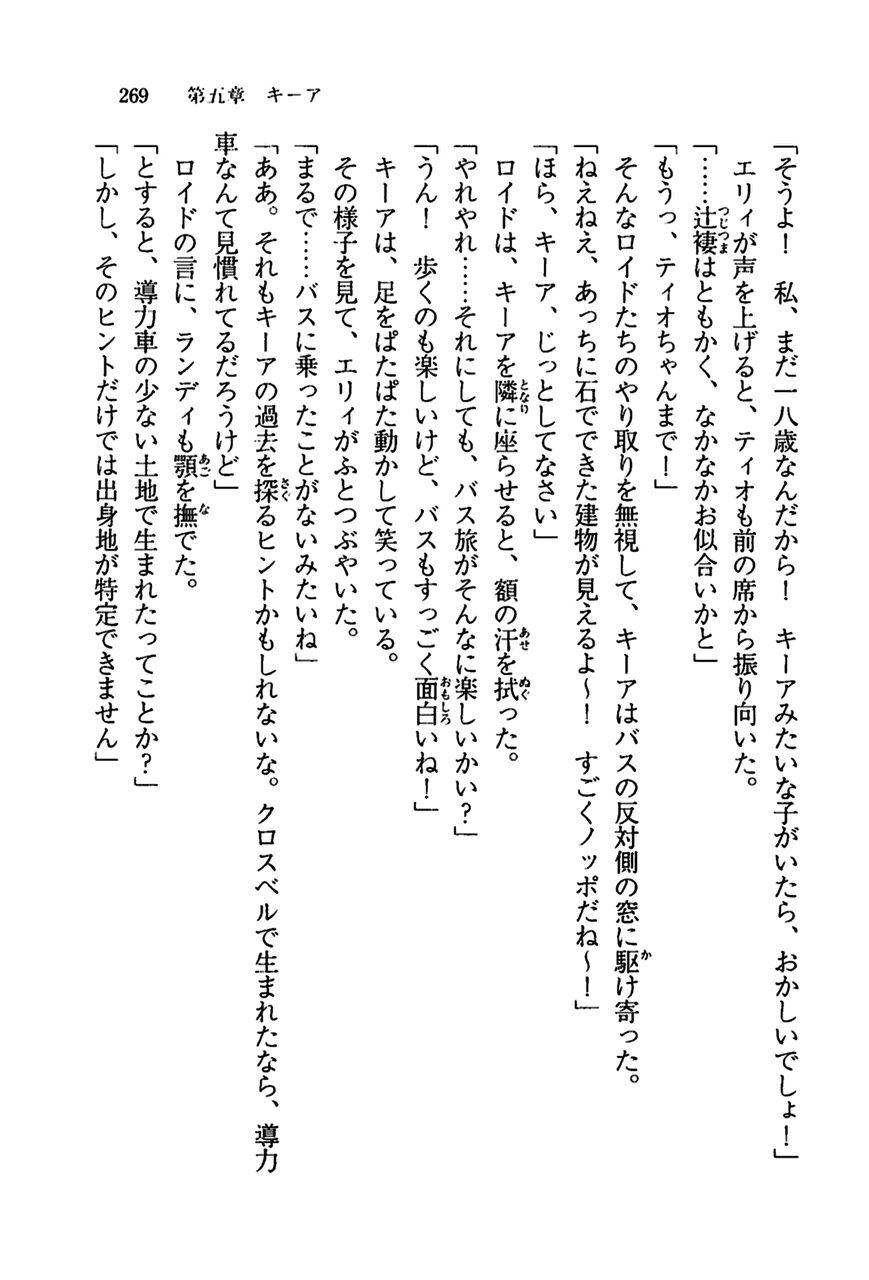 269　第五章　キーア
「そうよ！　私、まだ一八歳なんだから！　キーアみたいな子がいたら、おかしいでしょ！」
　エリィが声を上げると、ティオも前の席から振り向いた。
「……辻褄はともかく、なかなかお似合いかと」
「もうっ、ティオちゃんまで！」
　そんなロイドたちのやり取りを無視して、キーアはバスの反対側の窓に駆け寄った。
「ねえねえ、あっちに石でできた建物が見えるよ～！　すごくノッポだね～！」
「ほら、キーア、じっとしてなさい」
　ロイドは、キーアを隣に座らせると、額の汗を拭った。
「やれやれ……それにしても、バス旅がそんなに楽しいかい？」
「うん！　歩くのも楽しいけど、バスもすっごく面白いね！」
　キーアは、足をぱたぱた動かして笑っている。
　その様子を見て、エリィがふとつぶやいた。
「まるで……バスに乗ったことがないみたいね」
「ああ。それもキーアの過去を探るヒントかもしれないな。クロスベルで生まれたなら、導力
車なんて見慣れてるだろうけど」
　ロイドの言に、ランディも顎を撫でた。
「とすると、導力車の少ない土地で生まれたってことか？」
「しかし、そのヒントだけでは出身地が特定できません」